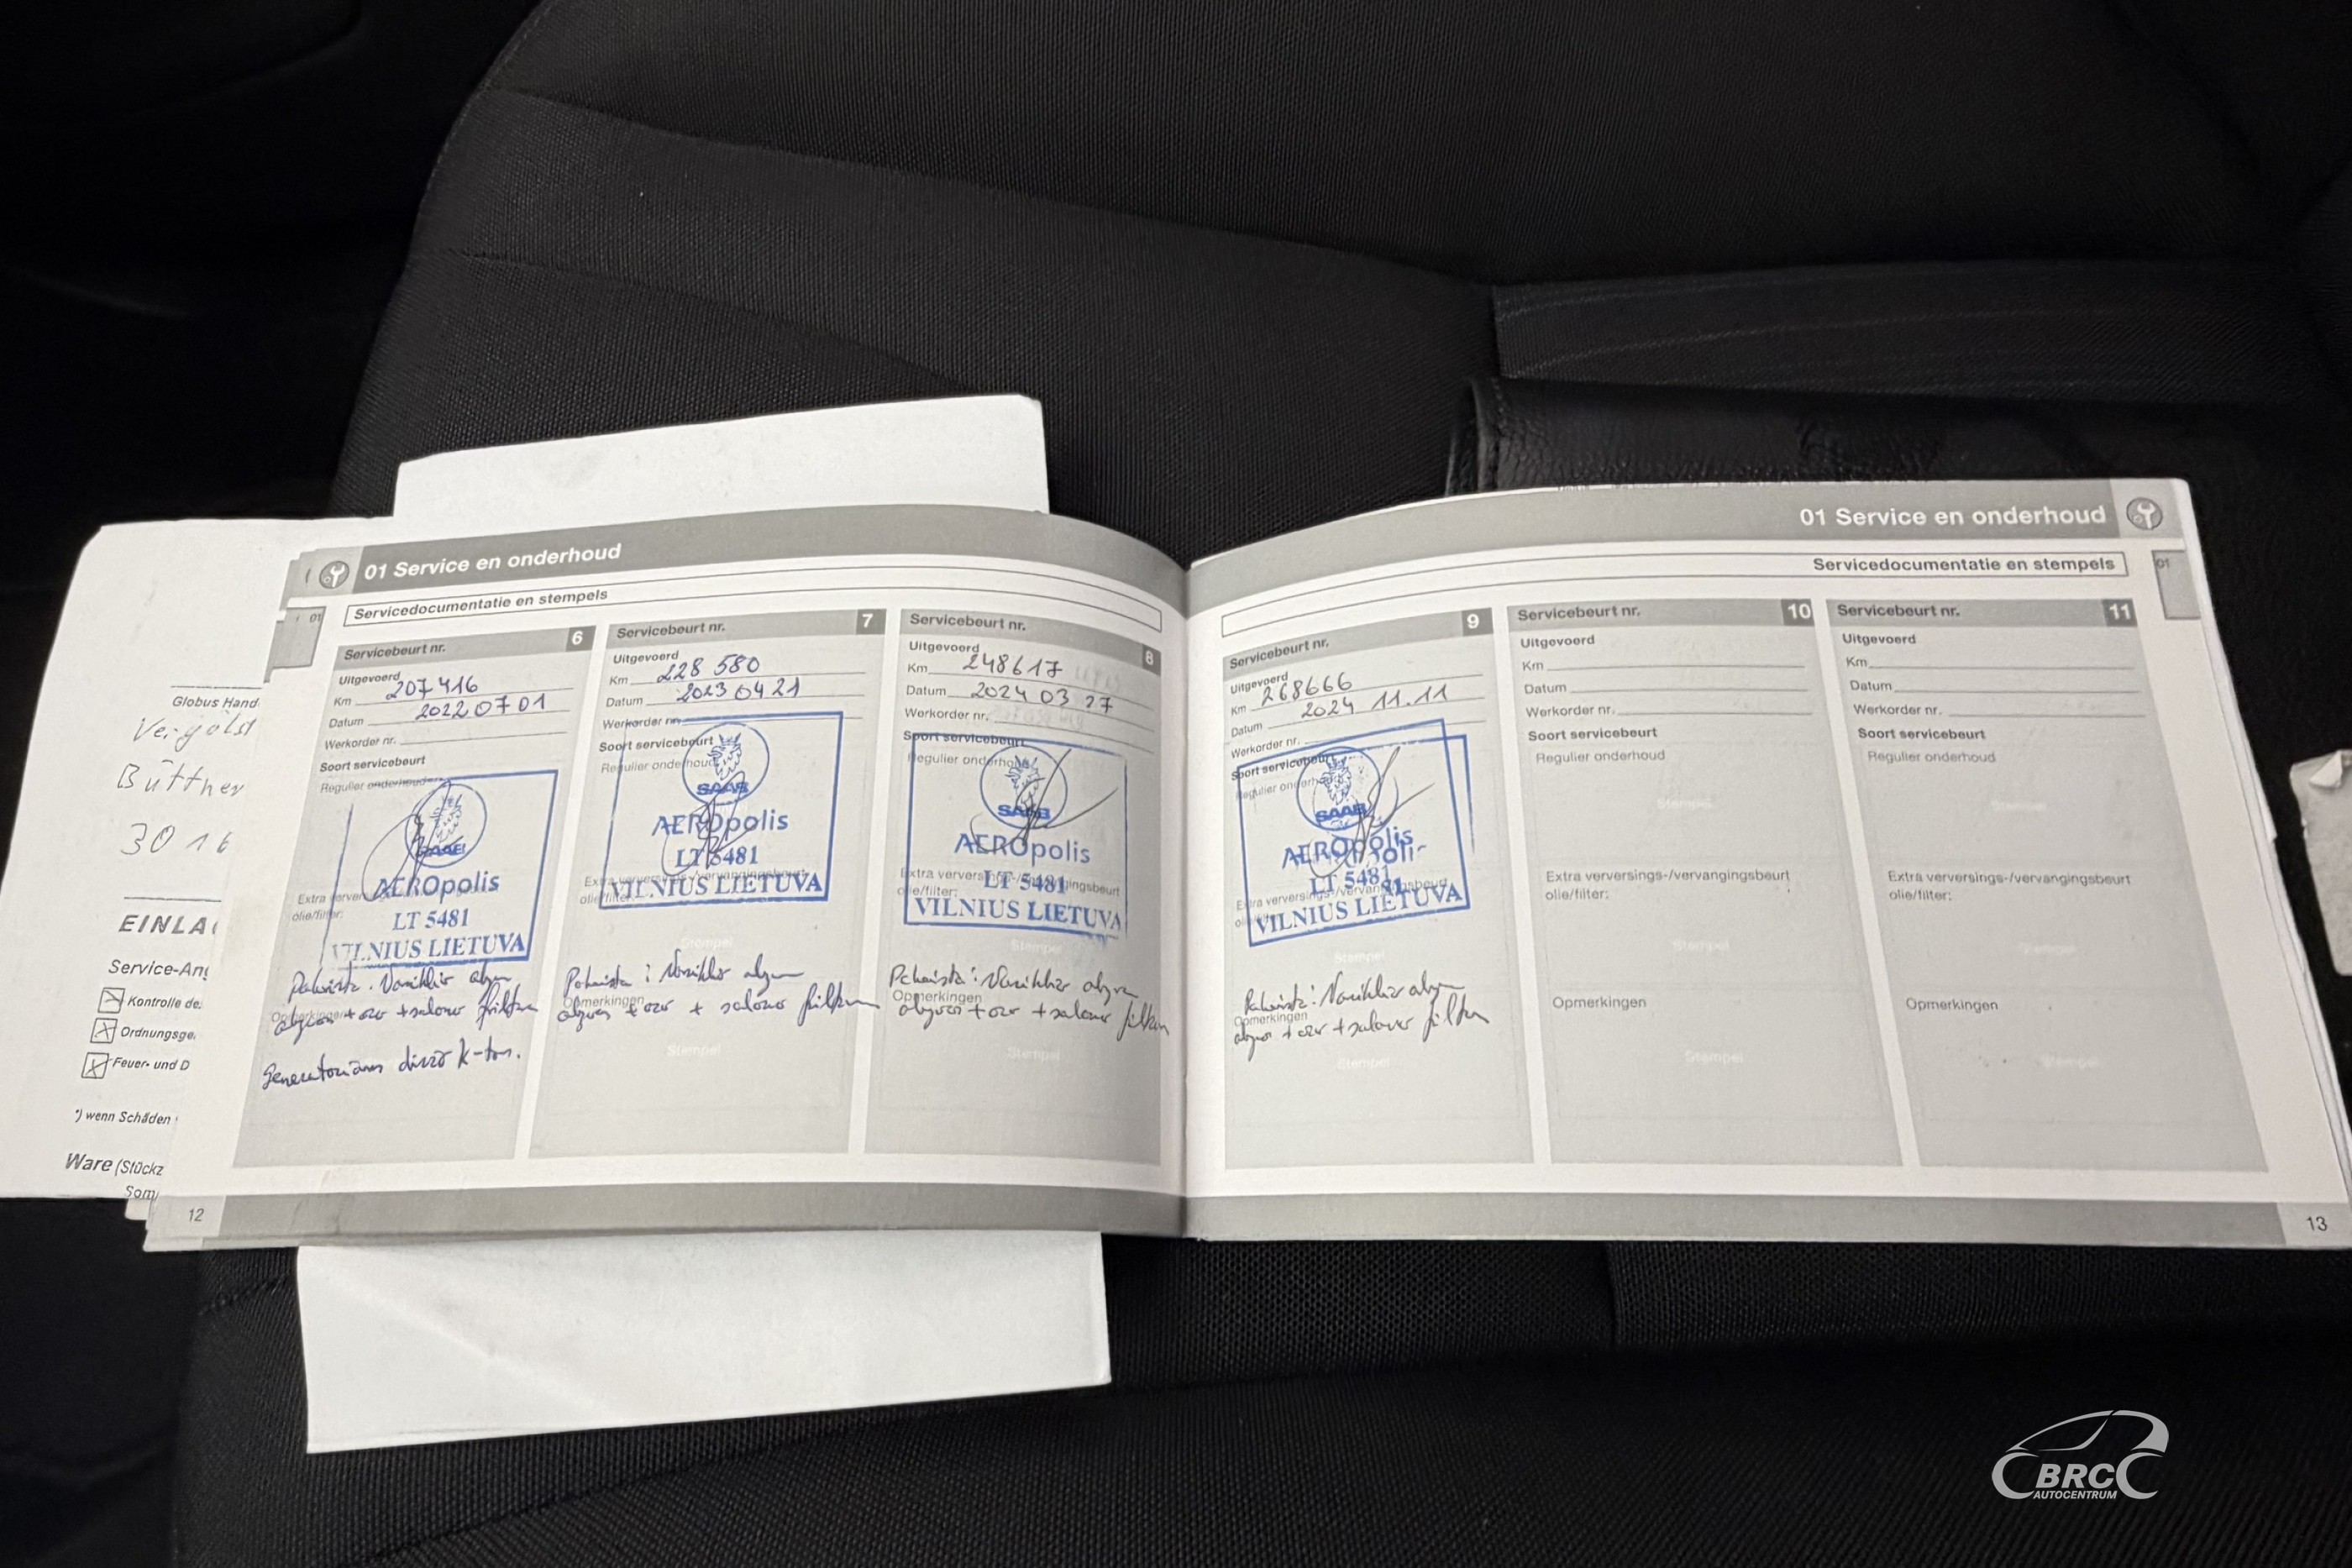 Globus Hand
Büttner
3016
EINLA
Service-Ang
Kontrolle de
Ordnungsge
Feuer- und D
*) wenn Schäden
Ware (Stückz
Som
01 Service en onderhoud
01
Servicedocumentatie en stempels
Servicebeurt nr. 6
Uitgevoerd
Km 207 416
Datum 2022 07 01
Werkorder nr.
Soort servicebeurt
Regulier onderhoud
SAAB
AEROpolis
LT 5481
VILNIUS LIETUVA
olie/filter:
+ salono filtrų
Servicebeurt nr. 7
Uitgevoerd
Km 228 580
Datum 2023 04 21
Werkorder nr.
Soort servicebeurt
Regulier onderhoud
SAAB
AEROpolis
LT 5481
Extra verversings-/vervangingsbeurt
olie/filter:
VILNIUS LIETUVA
Stempel
Opmerkingen
+ oro + salono
Stempel
Servicebeurt nr. 8
Uitgevoerd
Km 248617
Datum 2024 03 27
Werkorder nr.
Soort servicebeurt
Regulier onderhoud
SAAB
AEROpolis
Extra verversings-/vervangingsbeurt
olie/filter:
LT 5481
VILNIUS LIETUVA
Stempel
Opmerkingen
+ oro + salono
Stempel
12
01 Service en onderhoud
Servicedocumentatie en stempels
01
Servicebeurt nr. 9
Uitgevoerd
Km 268666
Datum 2024 11.11
Werkorder nr.
Soort servicebeurt
Regulier onderhoud
SAAB
AEROpolis
LT 5481
Extra verversings-/vervangingsbeurt
VILNIUS LIETUVA
Stempel
Opmerkingen
+ oro + salono
Stempel
Servicebeurt nr. 10
Uitgevoerd
Km
Datum
Werkorder nr.
Soort servicebeurt
Regulier onderhoud
Stempel
Extra verversings-/vervangingsbeurt
olie/filter:
Stempel
Opmerkingen
Stempel
Servicebeurt nr. 11
Uitgevoerd
Km
Datum
Werkorder nr.
Soort servicebeurt
Regulier onderhoud
Stempel
Extra verversings-/vervangingsbeurt
olie/filter:
Stempel
Opmerkingen
Stempel
13
BRC
AUTOCENTRUM